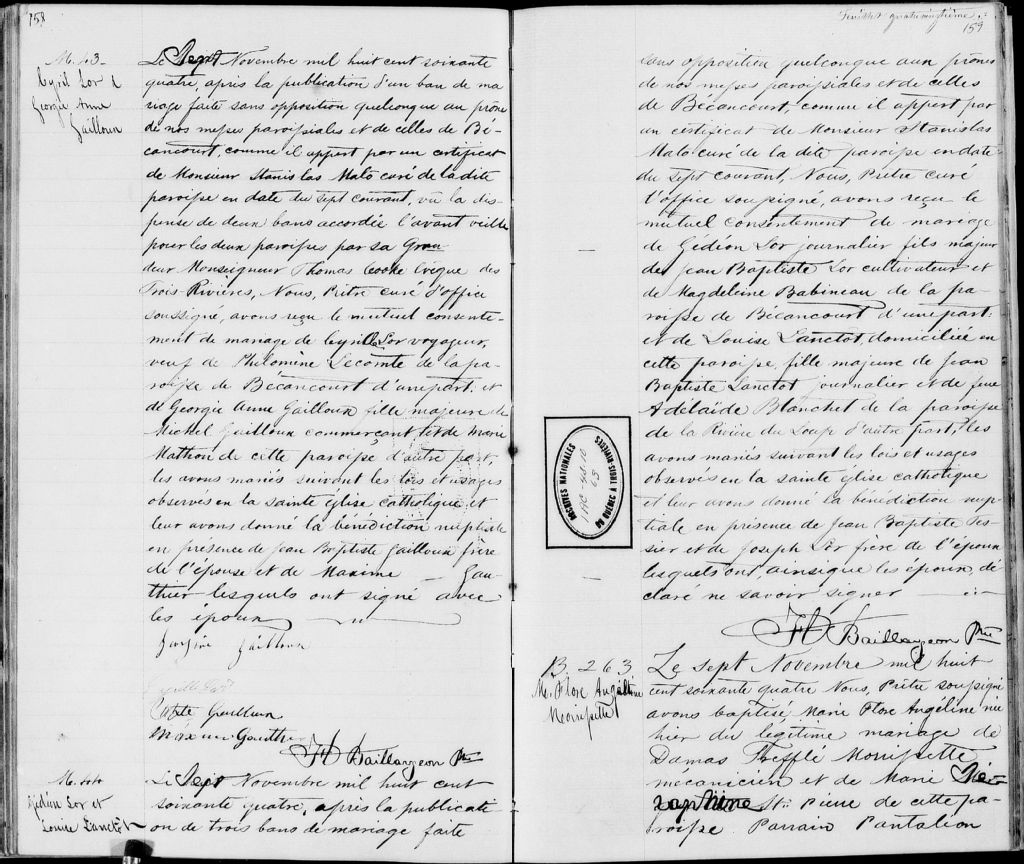 158
M. 43-
Cyril Lor &
Georgie Anne
Gailloux
Le Sept Novembre mil huit cent soixante
quatre, après la publication d'un ban de ma
riage faite sans opposition quelconque au prône
de nos messes paroissiales et de celles de Bé-
cancourt, comme il appert par un certificat
de Monsieur Stanislas Malo curé de la dite
paroisse en date du sept courant, vu la dis-
pense de deux bans accordée l'avant veille
pour les deux paroisses par sa Gran
deur Monseigneur Thomas Cooke Evêque des
Trois Rivières, Nous, Prêtre curé d'office
soussigné, avons reçu le mutuel consente-
ment de mariage de Cyrille Lor voyageur,
veuf de Philomène Lecomte de la pa-
roisse de Bécancourt d'une part: et
de Georgie Anne Gailloux fille majeure de
Michel Gailloux commerçant et de Marie
Mathon de cette paroisse d'autre part,
les avons mariés suivant les lois et usages
observés en la sainte église catholique, et
leur avons donné la bénédiction nuptiale
en présence de Jean Baptiste Gailloux frère
de l'épouse et de Maxime — Gau-
thier lesquels ont signé avec
les époux
Gailloux
Gailloux
Maxime Gauthier
Baillargeon Ptre
M. 44
Gédéon Lor et
Louise Lanctot
Le Sept Novembre mil huit cent
soixante quatre, après la publicati
on de trois bans de mariage faite
Feuillet quatrevingtième
159
sans opposition quelconque aux prônes
de nos messes paroissiales et de celles
de Bécancourt, comme il appert par
un certificat de Monsieur Stanislas
Malo curé de la dite paroisse en date
du sept courant, Nous, Prêtre curé
d'office soussigné, avons reçu le
mutuel consentement de mariage
de Gédéon Lor journalier fils majeur
de Jean Baptiste Lor cultivateur et
de Magdeleine Babineau de la pa-
roisse de Bécancourt d'une part:
et de Louise Lanctot, domiciliée en
cette paroisse, fille majeure de Jean
Baptiste Lanctot journalier et de feue
Adélaïde Blanchet de la paroisse
de la Rivière du Loup d'autre part, les
avons mariés suivant les lois et usages
observés en la sainte église catholique
et leur avons donné la bénédiction nup-
tiale en présence de Jean Baptiste Tes-
sier et de Joseph Lor frère de l'époux
lesquels ont, ainsi que les époux, dé-
claré ne savoir signer
Baillargeon Ptre
ARCHIVES NATIONALES
DU QUÉBEC À TROIS-RIVIÈRES
B. 263
M. Flore Angéline
Morissette
Le sept Novembre mil huit
cent soixante quatre Nous, Prêtre soussigné
avons baptisé Marie Flore Angéline née
hier du légitime mariage de
Damas Trefflé Morissette
mécanicien et de Marie Sé-
raphine St. Pierre de cette pa-
roisse. Parrain Pantaléon